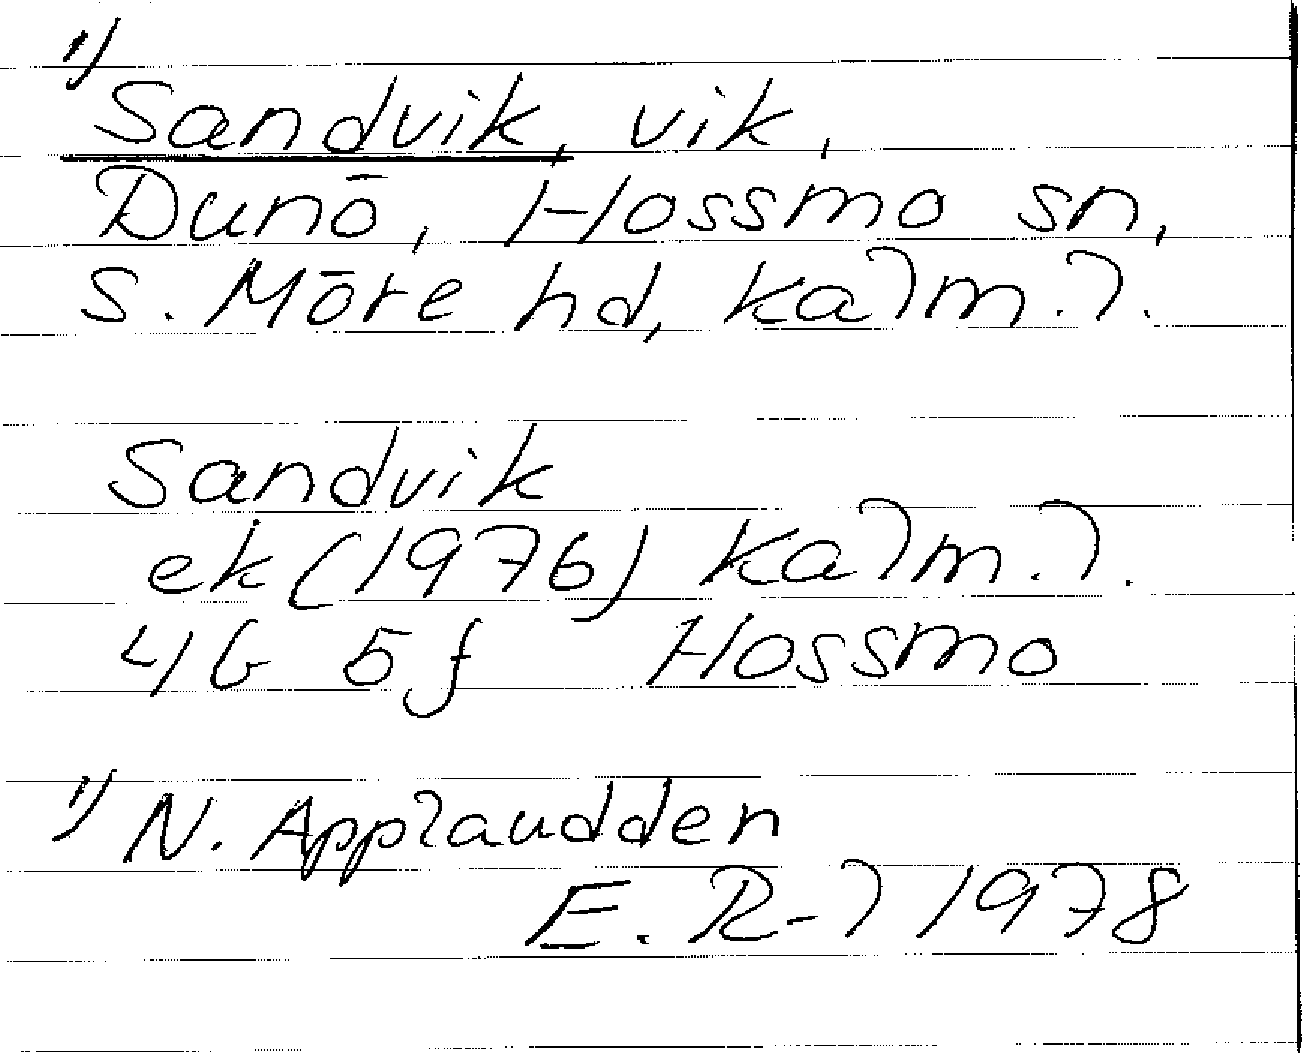 1) Sandvik, vik,
Dunö, Hossmo sn,
S. Möre hd, Kalm. l.
Sandvik
ek (1976) Kalm. l.
4G 5f Hossmo
1) N. Applaudden
E. R-l 1978